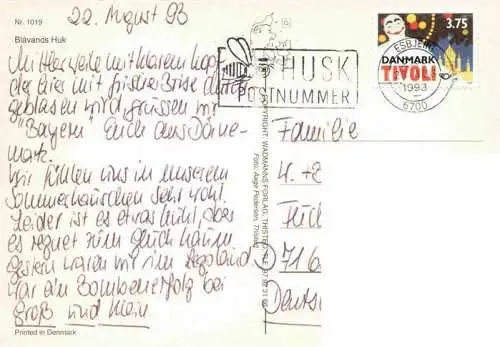 Nr. 1019
Blåvands Huk
22. August 93
Mittlerweile mit klarem Kopf
der hier mit frischer Brise durch-
geblasen wird grüssen wir
"Bayern" Euch aus Däne-
mark.
Wir fühlen uns in unserem
Sommerhäuschen sehr wohl.
Leider ist es etwas kühl, aber
es regnet zum Glück kaum,
gestern waren wir im Legoland
war ein Bombenerfolg bei
Groß und Klein
Printed in Denmark
COPYRIGHT: WADMANNS FORLAG, THISTED
Foto: Aage Pedersen, Thisted
HUSK
POSTNUMMER
ESBJERG
1993
6700
3.75
DANMARK
TIVOLI
Familie
H. +
D 716
Deuts